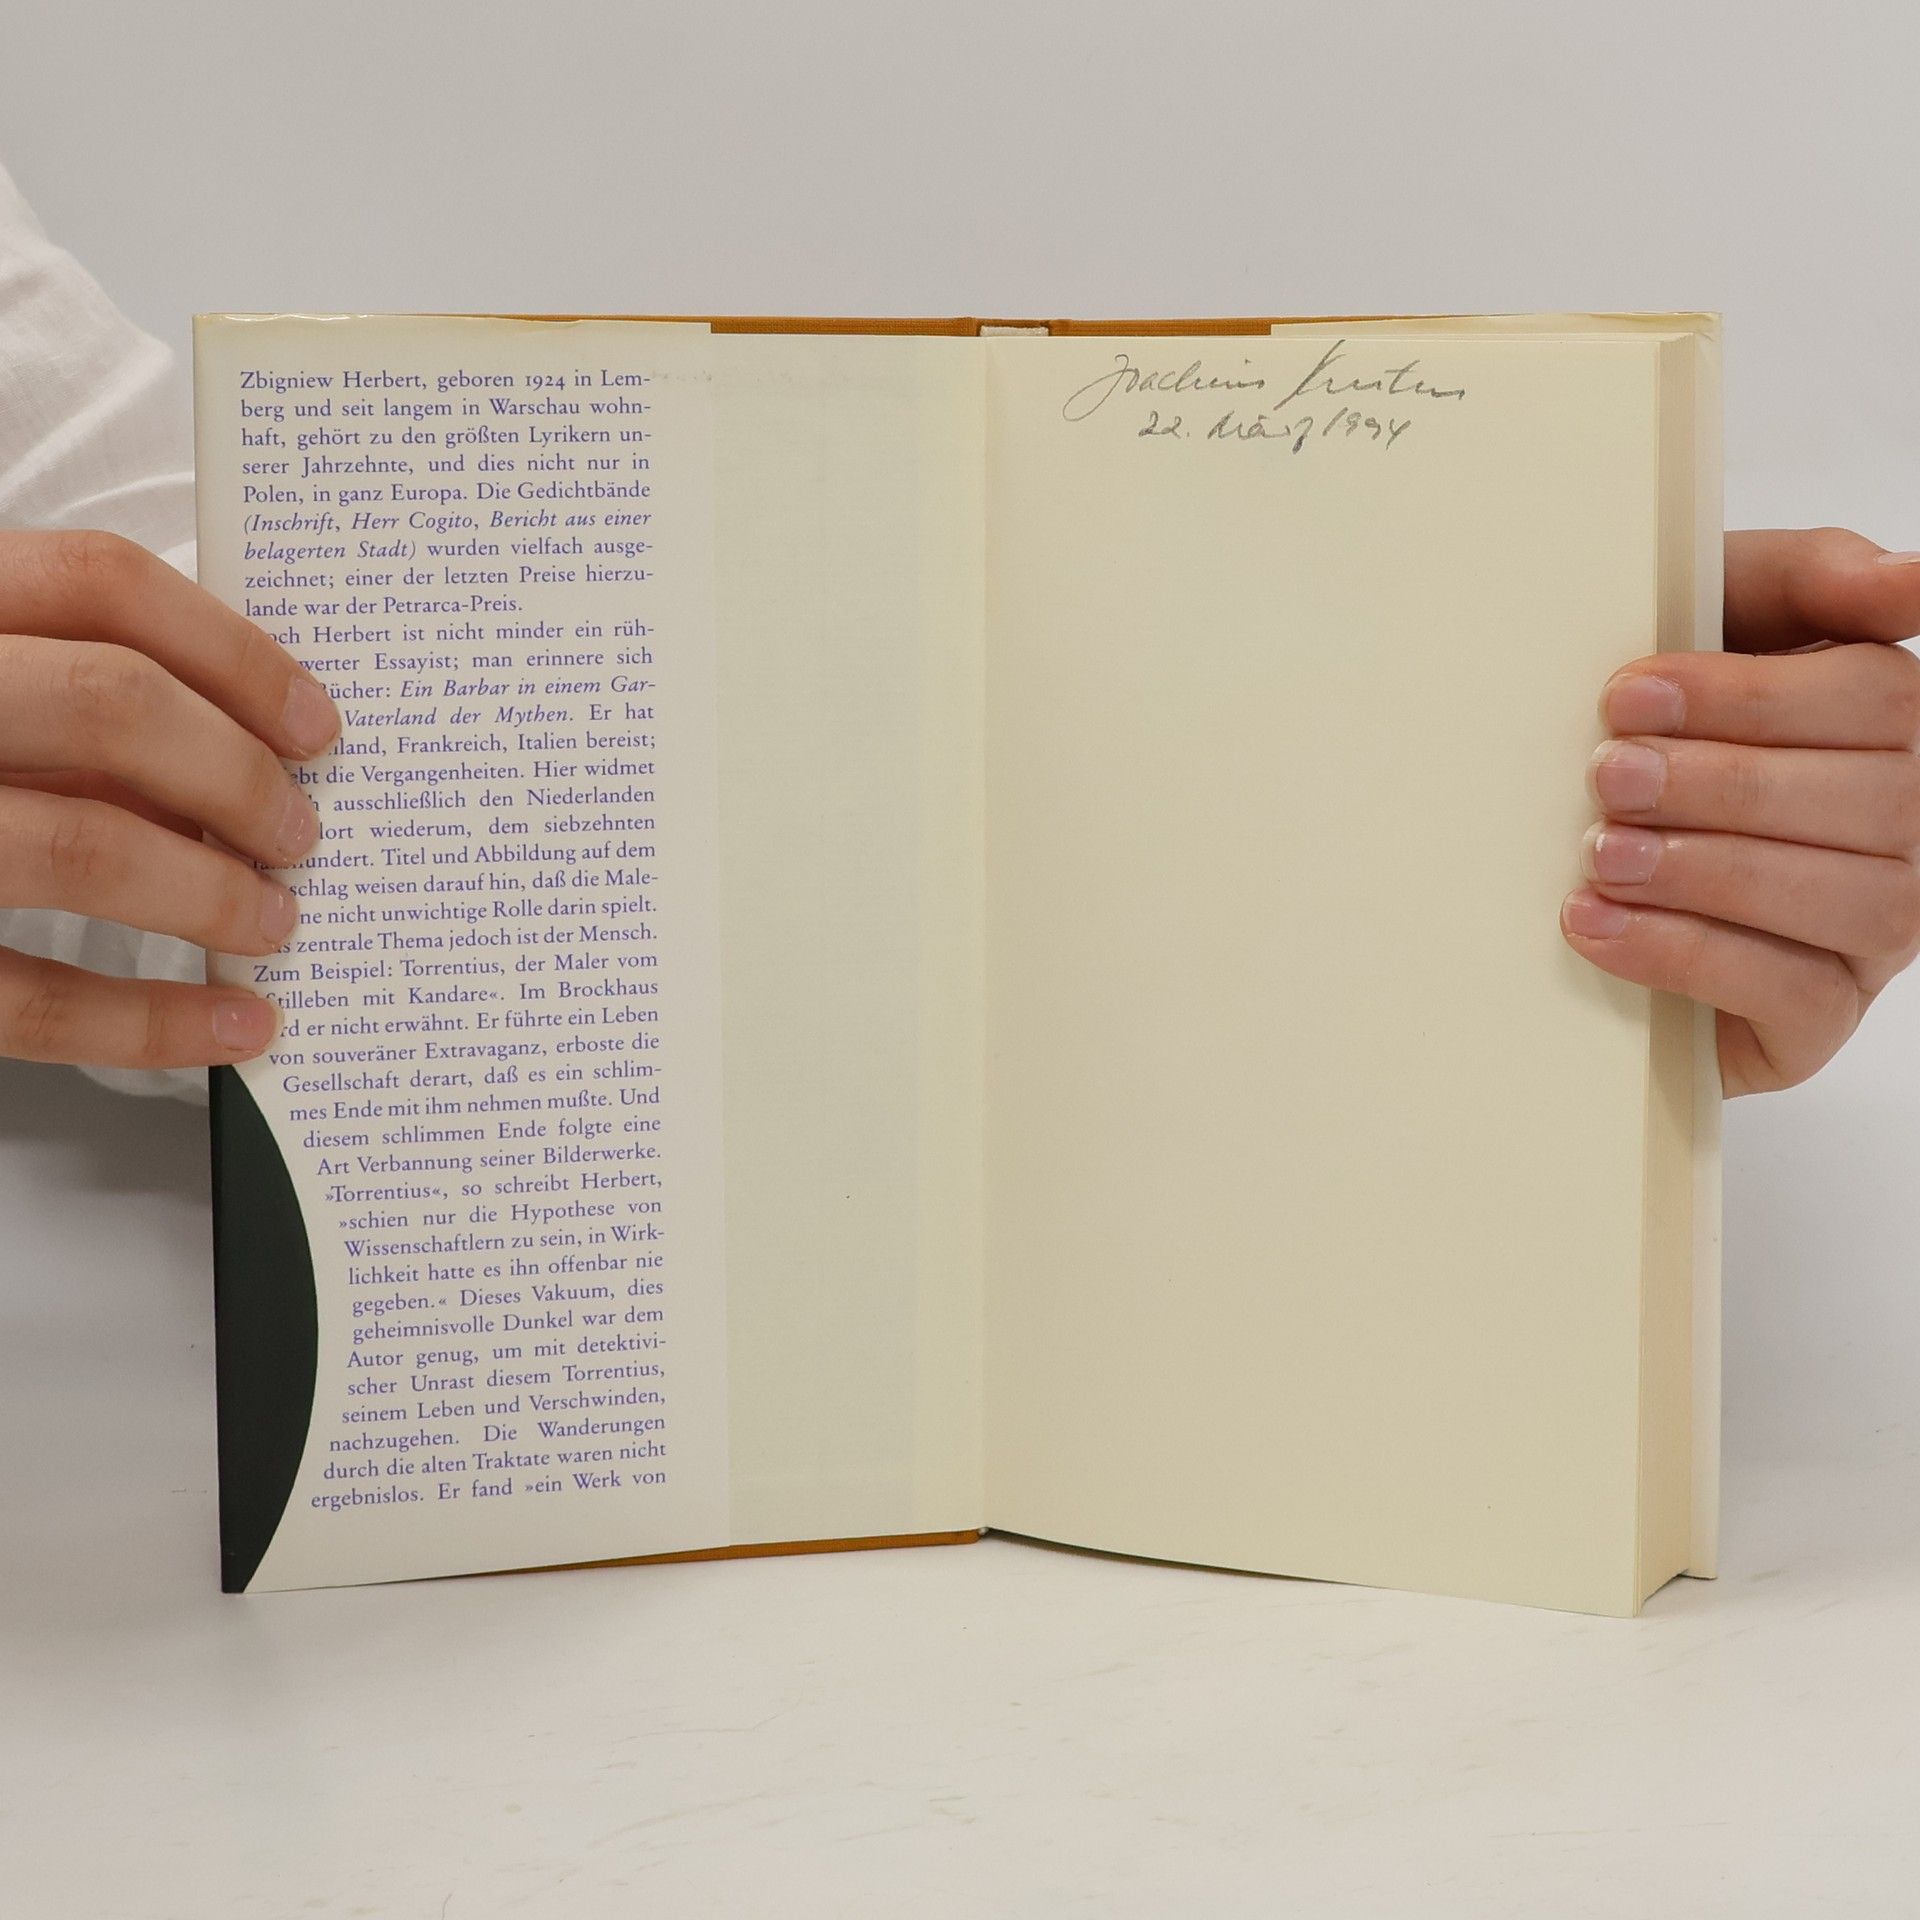 Zbigniew Herbert, geboren 1924 in Lem-
berg und seit langem in Warschau wohn-
haft, gehört zu den größten Lyrikern un-
serer Jahrzehnte, und dies nicht nur in
Polen, in ganz Europa. Die Gedichtbände
(Inschrift, Herr Cogito, Bericht aus einer
belagerten Stadt) wurden vielfach ausge-
zeichnet; einer der letzten Preise hierzu-
lande war der Petrarca-Preis.
och Herbert ist nicht minder ein rüh-
werter Essayist; man erinnere sich
Bücher: Ein Barbar in einem Gar-
Vaterland der Mythen. Er hat
land, Frankreich, Italien bereist;
ebt die Vergangenheiten. Hier widmet
h ausschließlich den Niederlanden
dort wiederum, dem siebzehnten
hundert. Titel und Abbildung auf dem
schlag weisen darauf hin, daß die Male-
ne nicht unwichtige Rolle darin spielt.
s zentrale Thema jedoch ist der Mensch.
Zum Beispiel: Torrentius, der Maler vom
Stilleben mit Kandare«. Im Brockhaus
rd er nicht erwähnt. Er führte ein Leben
von souveräner Extravaganz, erboste die
Gesellschaft derart, daß es ein schlim-
mes Ende mit ihm nehmen mußte. Und
diesem schlimmen Ende folgte eine
Art Verbannung seiner Bilderwerke.
»Torrentius«, so schreibt Herbert,
»schien nur die Hypothese von
Wissenschaftlern zu sein, in Wirk-
lichkeit hatte es ihn offenbar nie
gegeben.« Dieses Vakuum, dies
geheimnisvolle Dunkel war dem
Autor genug, um mit detektivi-
scher Unrast diesem Torrentius,
seinem Leben und Verschwinden,
nachzugehen. Die Wanderungen
durch die alten Traktate waren nicht
ergebnislos. Er fand »ein Werk von
Joachim Kersten
22. März 1994